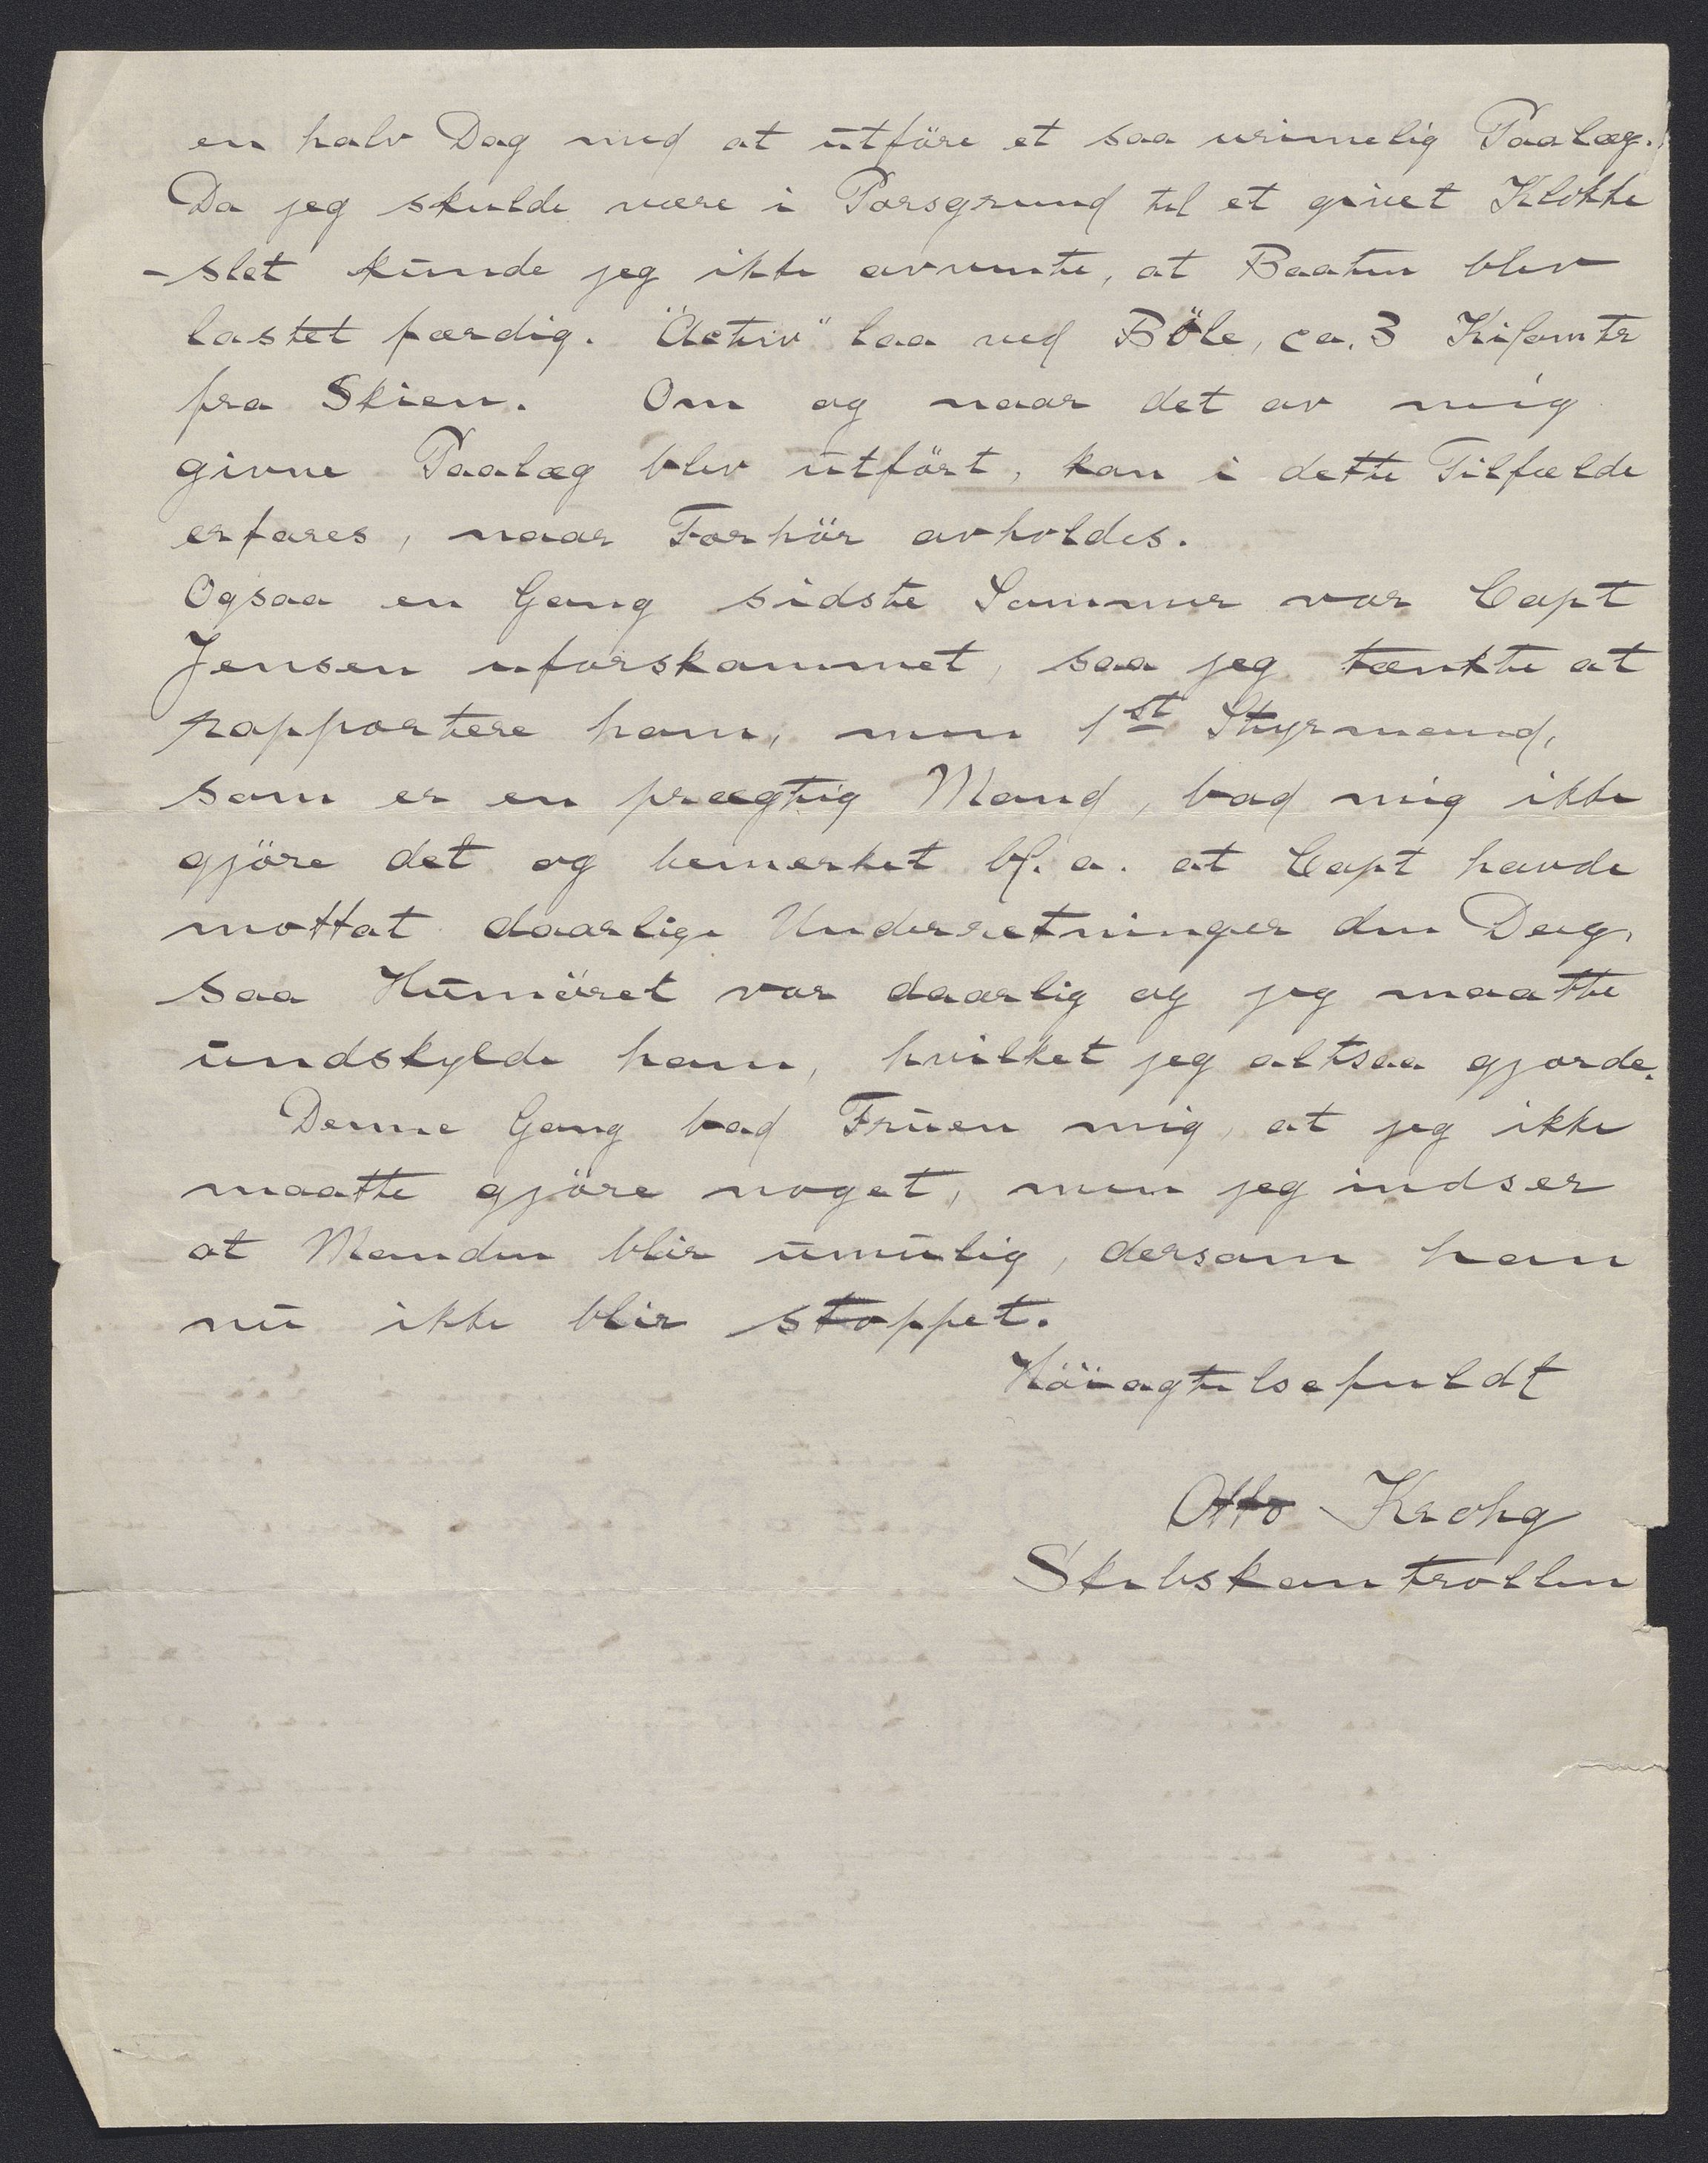 en halv Dag med at utföre et saa urimelig Paalæg.
Da jeg skulde være i Porsgrund til et givet Klokke
-slet kunde jeg ikke avvente, at Baaten blev
lastet færdig. "Activ" laa ved Böle, ca. 3 Kilomtr
fra Skien. Om og naar det av mig
givne Paalæg blev utfört, kan i dette Tilfælde
erfares, naar Forhör avholdes.
Ogsaa en Gang sidste Sommer var Capt
Jensen uforskammet, saa jeg tænkte at
rapportere ham, men 1st Styrmand,
som er en prægtig Mand, bad mig ikke
gjöre det og bemerket bl. a. at Capt havde
mottat daarlige Underretninger den Dag,
saa Humöret var daarlig og jeg maatte
undskylde ham, hvilket jeg altsaa gjorde.
Denne Gang bad Fruen mig, at jeg ikke
maatte gjöre noget, men jeg indser
at Manden blir umulig, dersom han
nu ikke blir stoppet.
Höiagtelsefuldt
Otto Krohg
Skibskontrollen